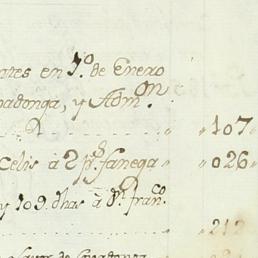 ates en 1º de Enero
padonga, y Adm.on
" " 107
Celis à 2 p.s fanega " " 026
y 109. dhas à 8 r.s fran.co
" " 212